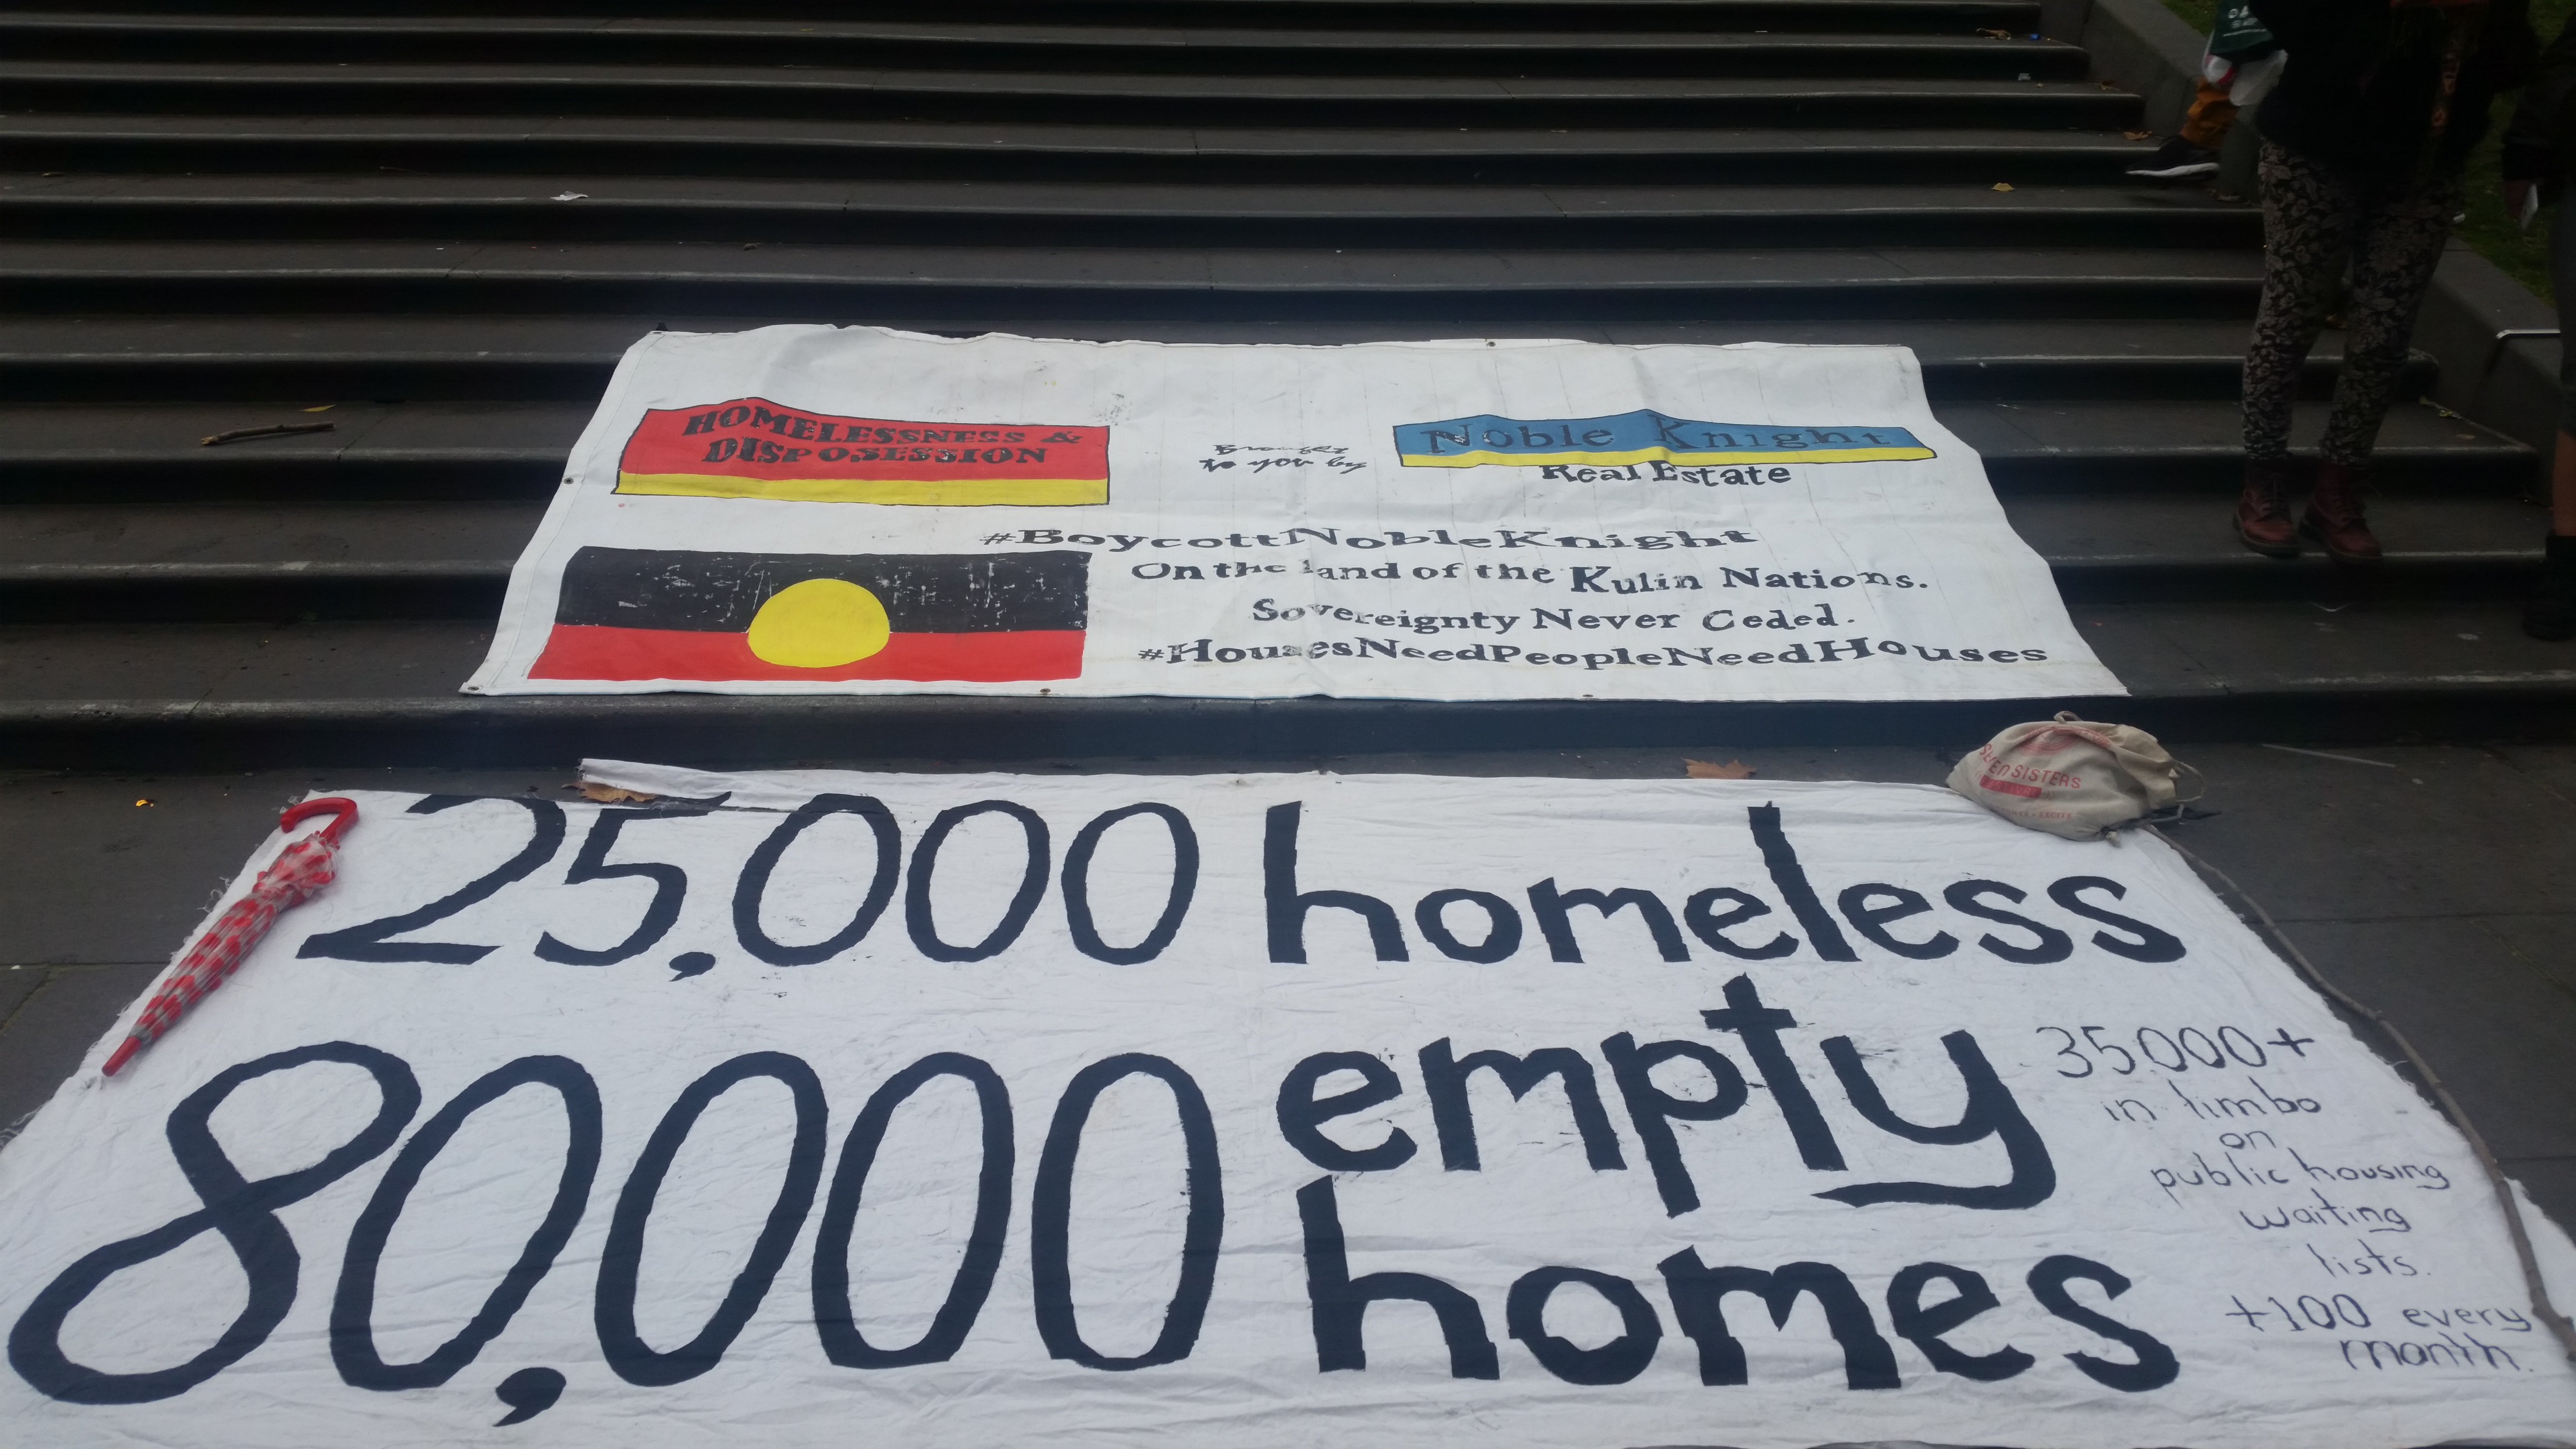 HOMELESSNESS &
DISPOSESSION
Brought
to you by
Noble Knight
Real Estate
#BoycottNobleKnight
On the land of the Kulin Nations.
Sovereignty Never Ceded.
#HousesNeedPeopleNeedHouses
SEVEN SISTERS
25,000 homeless
80,000 empty
homes
35000+
in limbo
on
public housing
waiting
lists.
+100 every
month.